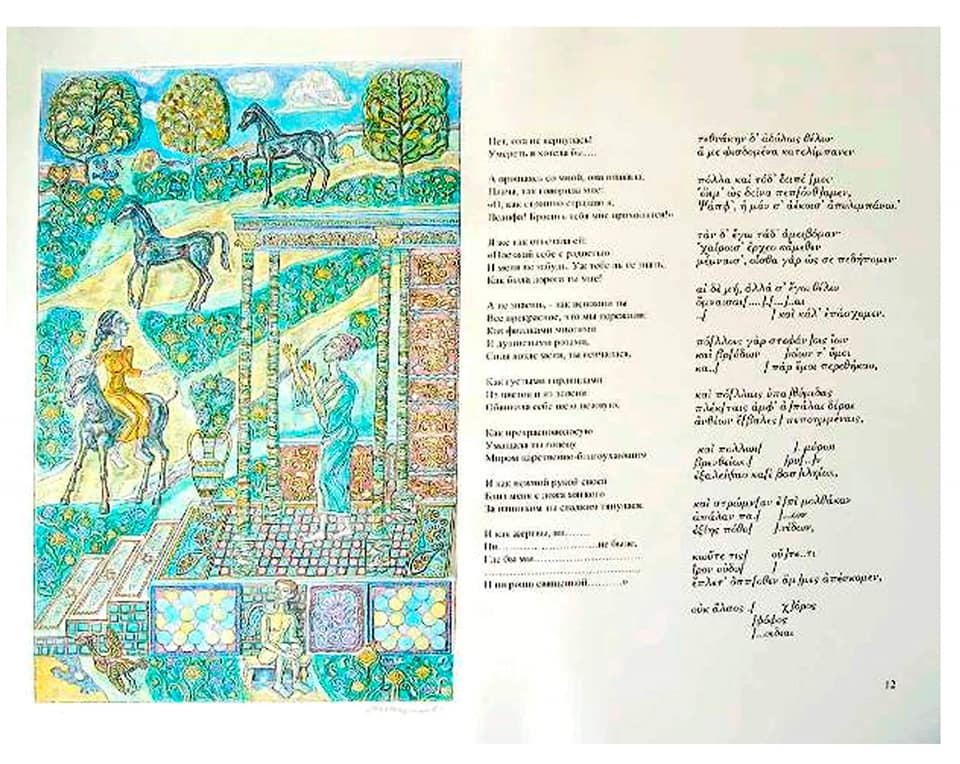 Нет, она не вернулась!
Умереть я хотела бы....
А прощаясь со мной, она плакала,
Плача, так говорила мне:
«О, как страшно страдаю я,
Псапфо! Бросить тебя мне приходится!»
Я же так отвечала ей:
«Поезжай себе с радостью
И меня не забудь. Уж тебе ль не знать,
Как была дорога ты мне!
А не знаешь, - так вспомни ты
Все прекрасное, что мы пережили:
Как фиалками многими
И душистыми розами,
Сидя возле меня, ты венчалась,
Как густыми гирляндами
Из цветов и из зелени
Обвивала себе шею нежную.
Как прекрасноволосую
Умащала ты голову
Миром царственно-благоухающим
И как нежной рукой своей
Близ меня с ложа мягкого
За напитком ты сладким тянулась.
И как жертвы, ни
Ни не было,
Где бы мы
И ни рощи священной
τεθνάκην δ' ἀδόλως θέλω
ἄ με ψισδομένα κατελίμπανεν
πόλλα καὶ τόδ' ἔειπέ [μοι
'ὤιμ' ὠς δεῖνα πεπ[όνθ]αμεν,
Ψάπφ', ἦ μάν σ' ἀέκοισ' ἀπυλιμπάνω.'
τὰν δ' ἔγω τάδ' ἀμειβόμαν
'χαίροισ' ἔρχεο κἄμεθεν
μέμναισ', οἶσθα γὰρ ὤς σε πεδήπομεν
αἰ δὲ μή, ἀλλά σ' ἔγω θέλω
ὄμναισαι[....].[...]..αι
..[ ] καὶ κάλ' ἐπάσχομεν.
πό[λλοις γὰρ στεφάν]οις ἴων
καὶ βρ[όδων ]κίων τ' ὔμοι
κα..[ ] πὰρ ἔμοι περεθήκαο,
καὶ πό[λλαις ὐπα]θύμιδας
πλέκ[ταις ἀμφ' ἀ]πάλαι δέραι
ἀνθέων ἔ[βαλες] πεποημμέναις,
καὶ πολλωι[ ]. μύρωι
βρενθείωι.[ ]ρυ[..]ν
ἐξαλείψαο κα[ὶ βασ]ιληίωι,
καὶ στρώμν[αν ἐ]πὶ μολθάκαν
ἀπάλαν πα.[ ]...ων
ἐξίης πόθο[ν ].νίδων,
κωὔτε τις[ οὔ]τε..τι
ἶρον οὐδυ[ ]
ἔπλετ' ὄππ[οθεν ἄμ]μες ἀπέσκομεν,
οὐκ ἄλσος .[ χ]όρος
]ψόφος
]...οιδιαι
12